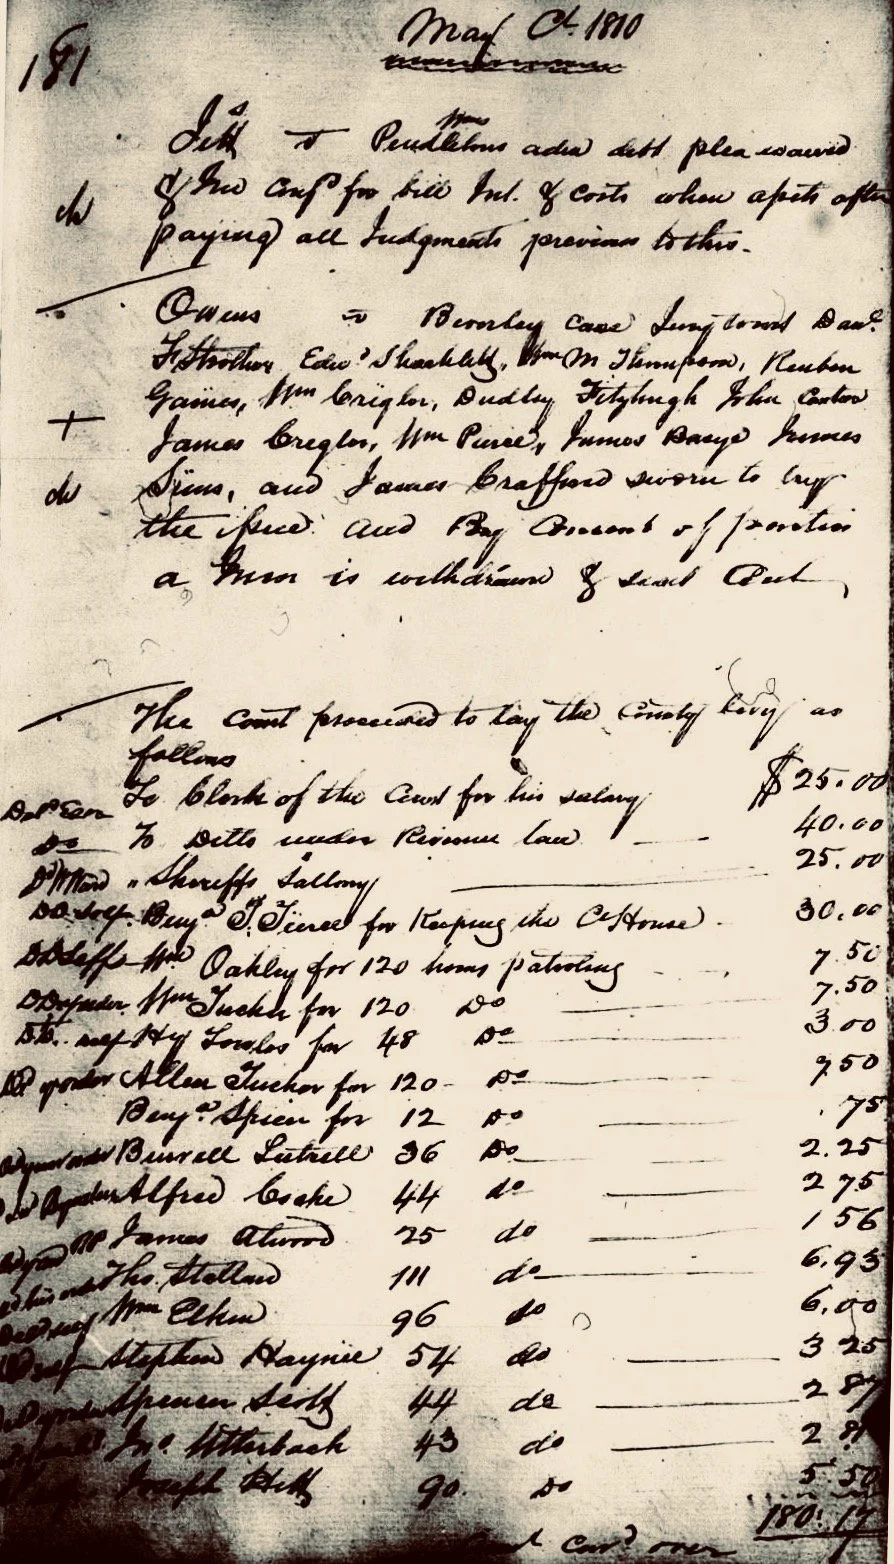 May Ct. 1810
181
Jett vs Pendletons Wms adm debt plea waived
& Jud confd for bill Int. & costs when assets after
paying all Judgments previous to this.
Owens vs Beverley case Jury towit Danl.
F Strother, Edwd Shacklett, Wm M Thompson, Reuben
Gaines, Wm Crigler, Dudley Fitzhugh John Carter
James Cregler, Wm Pierce, James Basye James
Sims, and James Crafford sworn to try
the issue and By Consent of parties
a Juror is withdrawn &
The Court proceeded to lay the County levy as
follows
To Clerk of the Court for his salary $25.00
Do To Ditto under Revenue law 40.00
" Sheriffs Sallery 25.00
Benja T. Tierce for Keeping the Ct House 30.00
Wm Oakley for 120 hours patroling 7.50
Wm Tucker for 120 Do 7.50
Hy for 48 Do 3.00
Allen Tucker for 120 Do 7 50
Benja Spicer for 12 Do .75
Burrell Lutrell 36 Do 2.25
Alfred Cocke 44 do 2 75
James Atwood 25 do 1 56
Tho. Stallard 111 do 6.93
Wm Elkin 96 do 6.00
Stephen Haynie 54 do 3 25
Spencer Scott 44 do 2 87
Jno. Utterback 43 do 2
Joseph Hitt 90 Do 5.50
180.17
Card over